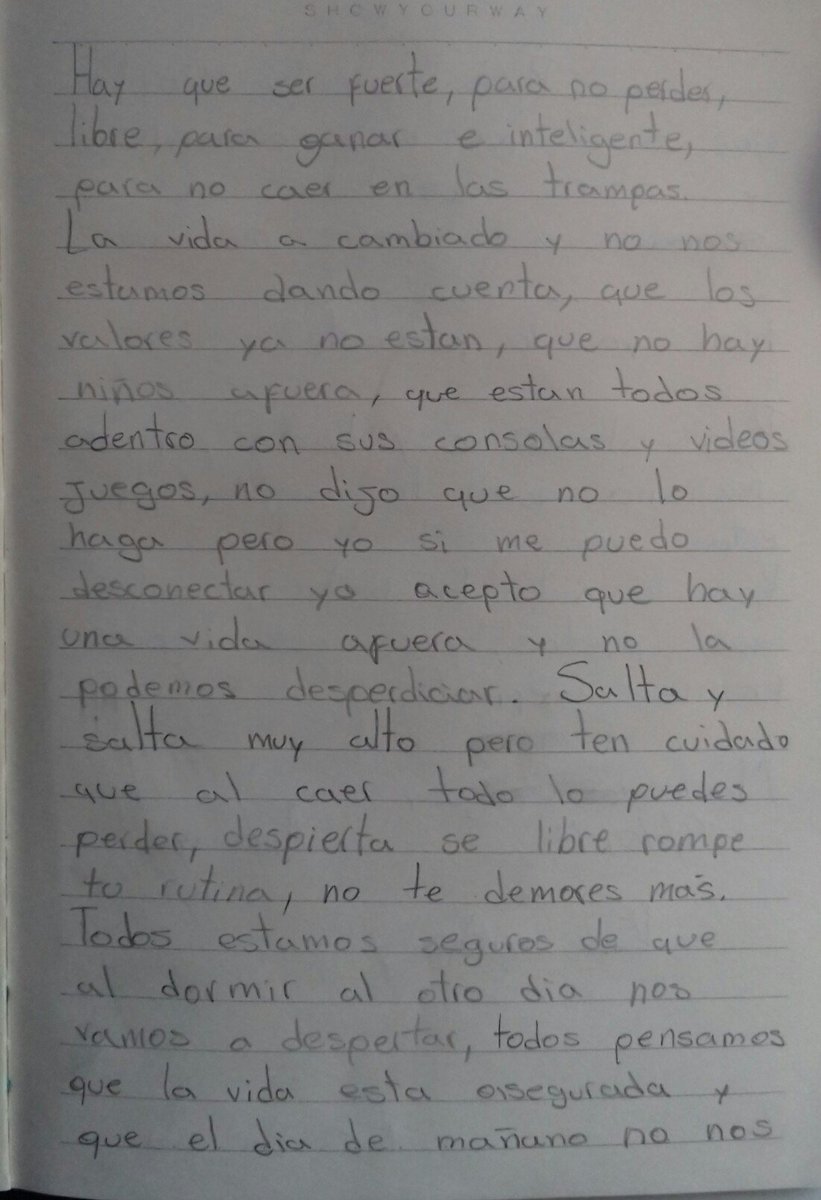 SHOWYOURWAY
Hay que ser fuerte, para no perder,
libre, para ganar e inteligente,
para no caer en las trampas.
La vida a cambiado y no nos
estamos dando cuenta, que los
valores ya no estan, que no hay
niños afuera, que estan todos
adentro con sus consolas y videos
juegos, no digo que no lo
haga pero yo si me puedo
desconectar yo acepto que hay
una vida afuera y no la
podemos desperdiciar. Salta y
salta muy alto pero ten cuidado
que al caer todo lo puedes
perder, despierta se libre rompe
tu rutina, no te demores más.
Todos estamos seguros de que
al dormir al otro dia nos
vamos a despertar, todos pensamos
que la vida esta asegurada y
que el dia de mañana no nos